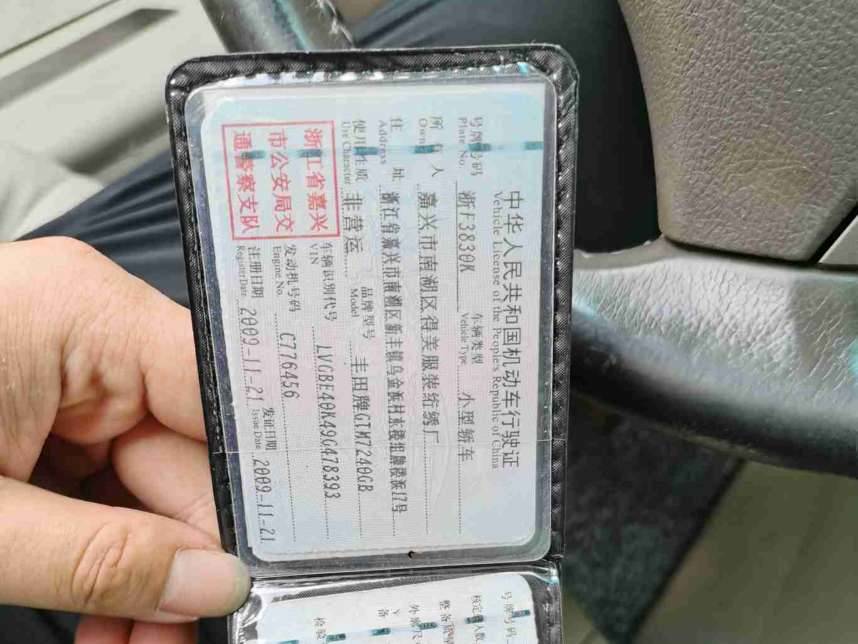 中华人民共和国机动车行驶证
Vehicle License of the People's Republic of China
号牌号码 浙F3830K 车辆类型 小型轿车
Plate No. Vehicle Type
所有人 嘉兴市南湖区得美服装绗绣厂
Owner
住址 浙江省嘉兴市南湖区新丰镇乌金 村东 组 17号
Address
使用性质 非营运 品牌型号 丰田牌GTM7240GB
Use Character Model
浙江省嘉兴
市公安局交
通警察支队
车辆识别代号 LVGBE40K49G478393
VIN
发动机号码 C776456
Engine No.
注册日期 2009-11-21 发证日期 2009-11-21
Register Date Issue Date
号牌号
核定 人数
整备
外廓尺
备
检验